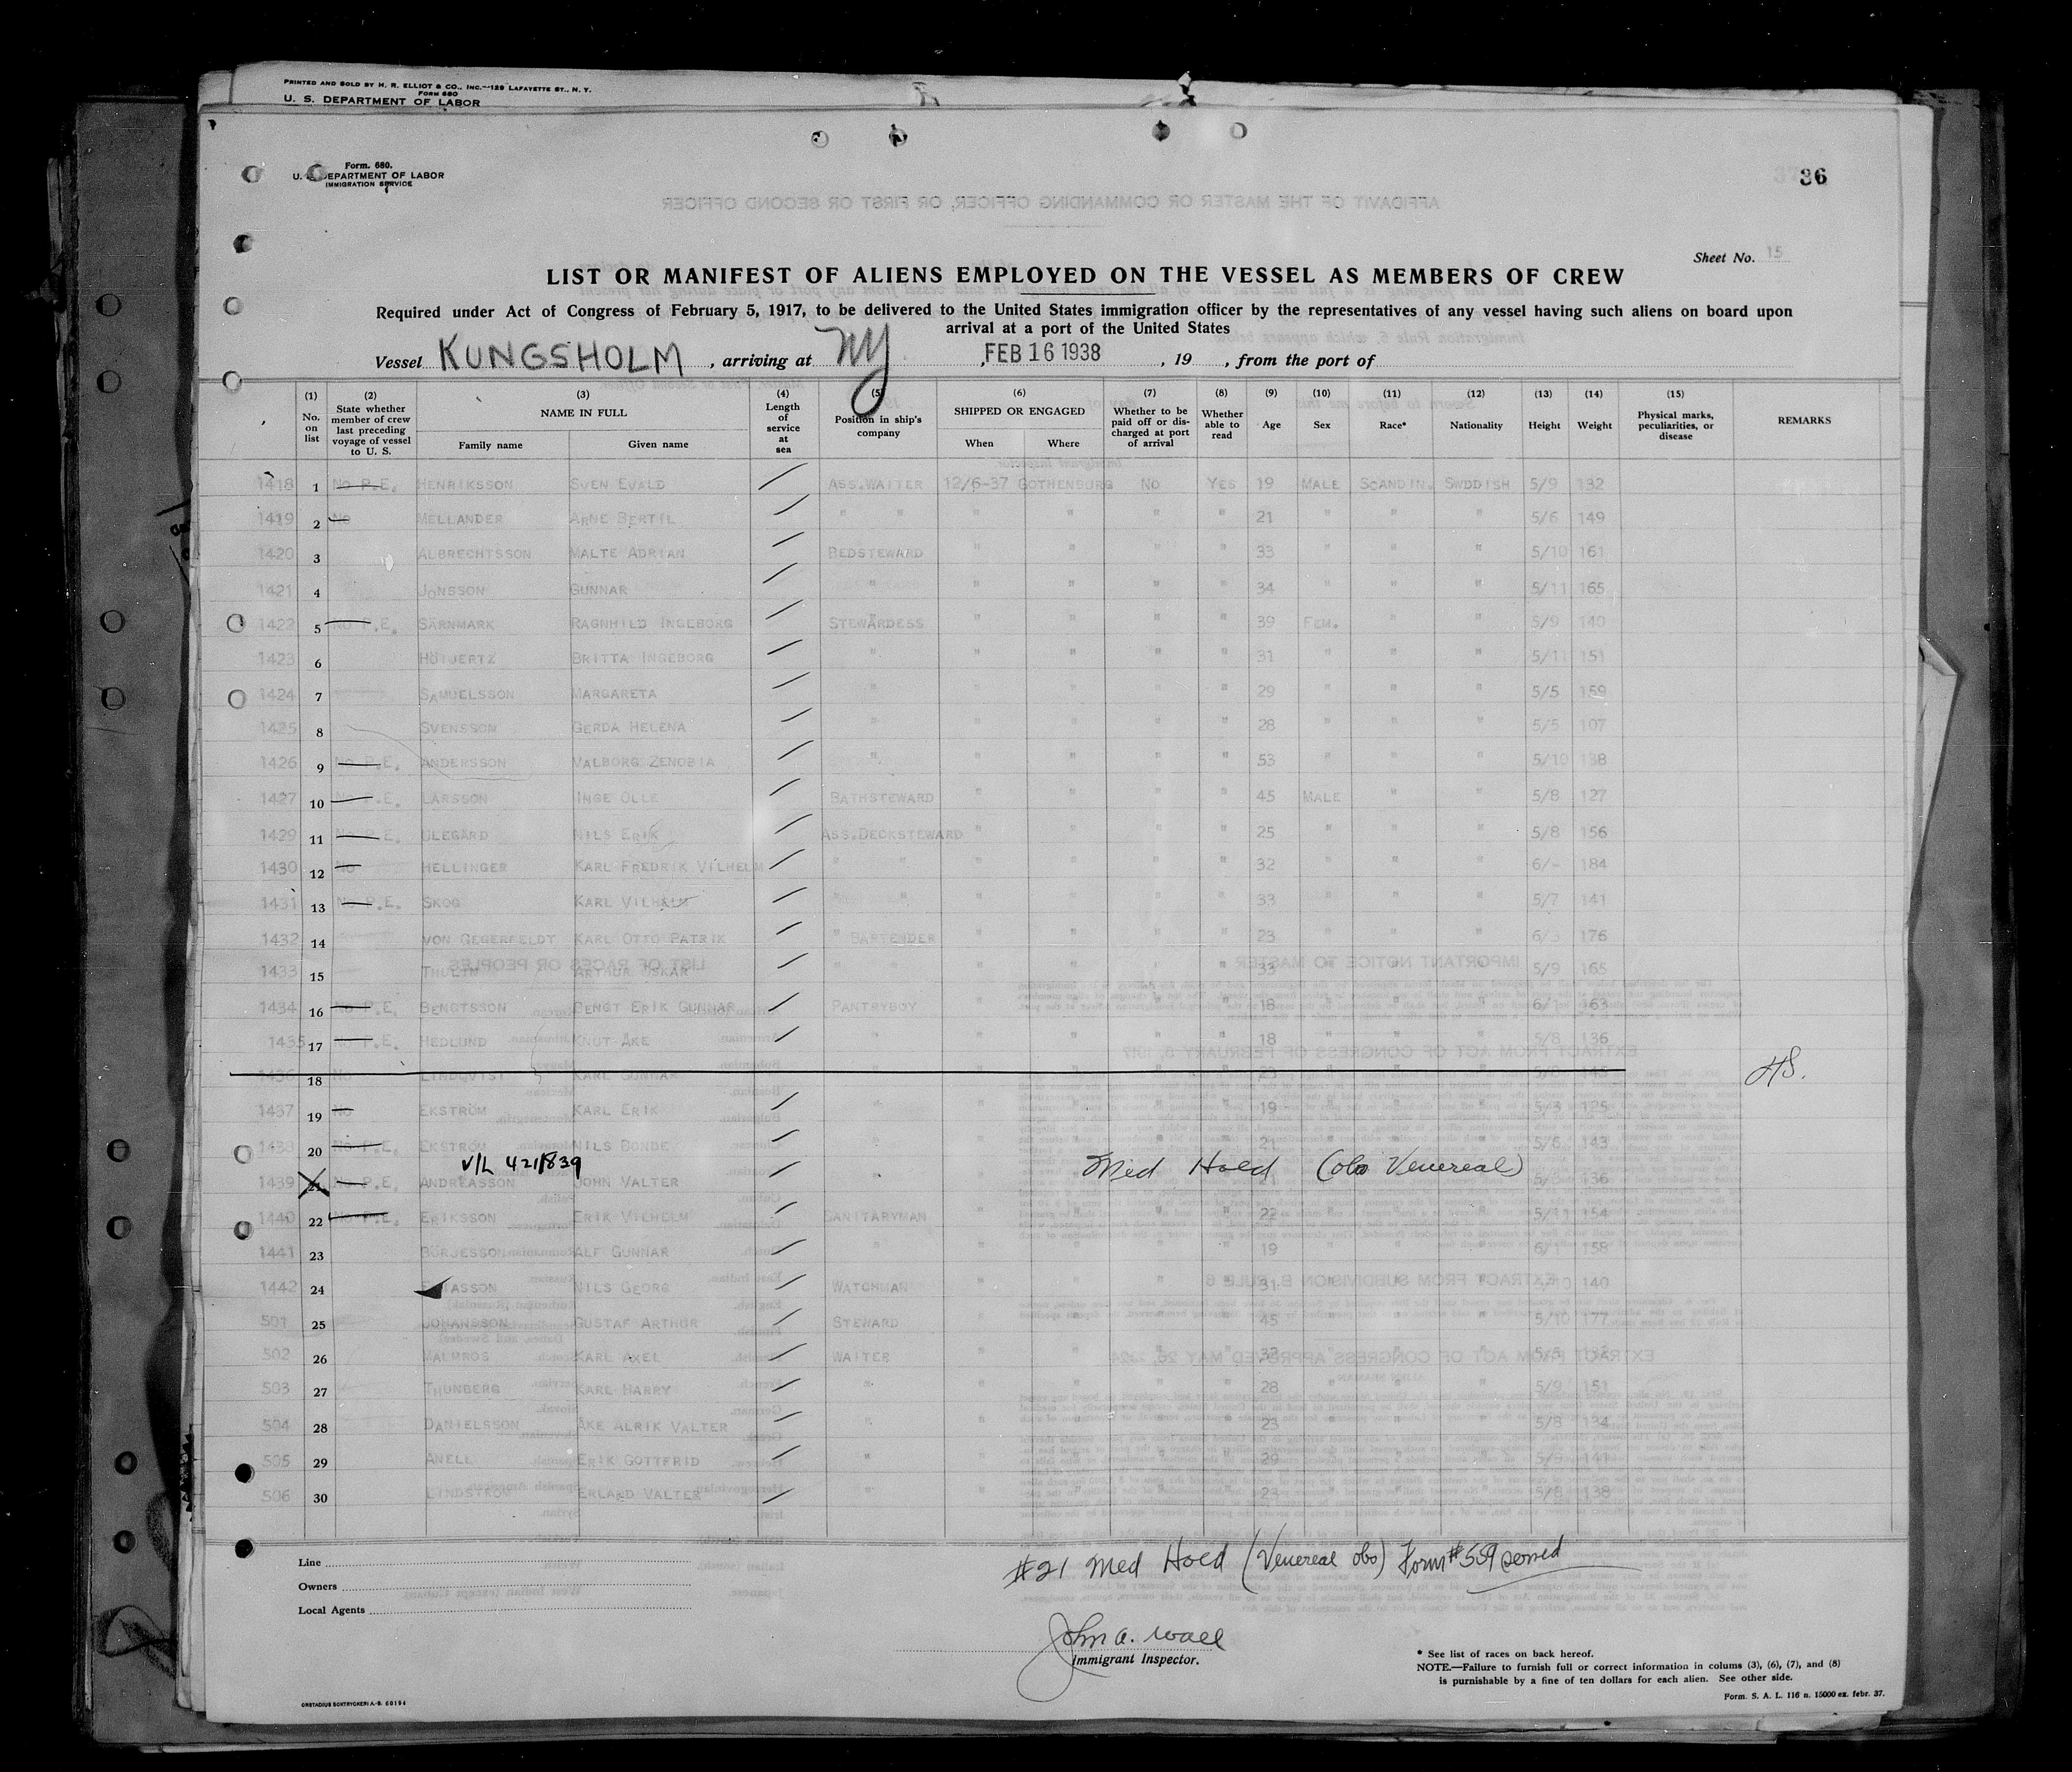 PRINTED AND SOLD BY H. R. ELLIOT & CO., INC.—129 LAFAYETTE ST., N. Y.
FORM 680
U. S. DEPARTMENT OF LABOR
Form. 680.
U. S. DEPARTMENT OF LABOR
IMMIGRATION SERVICE
36
Sheet No. 15
LIST OR MANIFEST OF ALIENS EMPLOYED ON THE VESSEL AS MEMBERS OF CREW
Required under Act of Congress of February 5, 1917, to be delivered to the United States immigration officer by the representatives of any vessel having such aliens on board upon
arrival at a port of the United States
Vessel KUNGSHOLM, arriving at NY, FEB 16 1938, 19 , from the port of
(1) No. on list (2) State whether member of crew last preceding voyage of vessel to U. S. (3) NAME IN FULL Family name Given name (4) Length of service at sea (5) Position in ship's company (6) SHIPPED OR ENGAGED When Where (7) Whether to be paid off or discharged at port of arrival (8) Whether able to read (9) Age (10) Sex (11) Race* (12) Nationality (13) Height (14) Weight (15) Physical marks, peculiarities, or disease REMARKS
1418 1 No P.E. HENRIKSSON SVEN EVALD ASS.WAITER 12/6-37 GOTHENBURG NO YES 19 MALE SCANDIN. SWDDISH 5/9 132
1419 2 No MELLANDER ARNE BERTIL " " " " " " 21 " " " 5/6 149
1420 3 ALBRECHTSSON MALTE ADRIAN BEDSTEWARD " " " " 33 " " " 5/10 161
1421 4 JONSSON GUNNAR " " " " " 34 " " " 5/11 165
1422 5 No P.E. SÄRNMARK RAGNHILD INGEBORG STEWARDESS " " " " 39 FEM. " " 5/9 140
1423 6 HÖIJERTZ BRITTA INGEBORG " " " " " 31 " " " 5/11 151
1424 7 SAMUELSSON MARGARETA " " " " " 29 " " " 5/5 159
1425 8 SVENSSON GERDA HELENA " " " " " 28 " " " 5/5 107
1426 9 No P.E. ANDERSSON VALBORG ZENOBIA " " " " " 53 " " " 5/10 138
1427 10 No P.E. LARSSON INGE OLLE BATHSTEWARD " " " " 45 MALE " " 5/8 127
1429 11 No P.E. ULEGÅRD NILS ERIK ASS.DECKSTEWARD " " " " 25 " " " 5/8 156
1430 12 No HELLINGER KARL FREDRIK VILHELM " " " " " " 32 " " " 6/- 184
1431 13 No P.E. SKOG KARL VILHELM " " " " " " 33 " " " 5/7 141
1432 14 VON GEGERFELDT KARL OTTO PATRIK " BARTENDER " " " " 23 " " " 6/3 176
1433 15 THULIN ARTHUR OSKAR " " " " " " 33 " " " 5/9 165
1434 16 No P.E. BENGTSSON BENGT ERIK GUNNAR PANTRYBOY " " " " 18 " " " 6/1 163
1435 17 No P.E. HEDLUND KNUT ÅKE " " " " " 18 " " " 5/8 136
1436 18 No LINDQVIST KARL GUNNAR
1437 19 No EKSTRÖM KARL ERIK " " " " " 19 " " " 5/3 125
1438 20 No P.E. EKSTRÖM NILS BONDE " " " " 21 " " " 5/6 143
V/L 421/839 Med Hold (obs Venereal)
1439 21 No P.E. ANDREASSON JOHN VALTER 21 136
1440 22 No P.E. ERIKSSON ERIK VILHELM SANITARYMAN " " " " 22 " " " 5/11 154
1441 23 BÖRJESSON ALF GUNNAR " " " " " 19 " " " 6/1 158
1442 24 NILS GEORG WATCHMAN " " " " 31 " " " 140
501 25 JOHANSSON GUSTAF ARTHUR STEWARD " " " " 45 " " " 5/10 177
502 26 MALMROS KARL AXEL WAITER " " " " 33 " " "
503 27 THUNBERG KARL HARRY " " " " " 28 " " " 5/9 151
504 28 DANIELSSON ÅKE ALRIK VALTER " " " " " 23 " " " 5/8 134
505 29 ANELL ERIK GOTTFRID " " " " " 29 " " " 5/9 141
506 30 LINDSTRÖM ERLAND VALTER " " " " " 23 " " " 5/8 138
Line
Owners
Local Agents
#21 Med Hold (Venereal obs) Form #559 served
John A. Wall
Immigrant Inspector.
* See list of races on back hereof.
NOTE.—Failure to furnish full or correct information in colums (3), (6), (7), and (8)
is punishable by a fine of ten dollars for each alien. See other side.
Form. S. A. L. 116 n. 15000 ex. febr. 37.